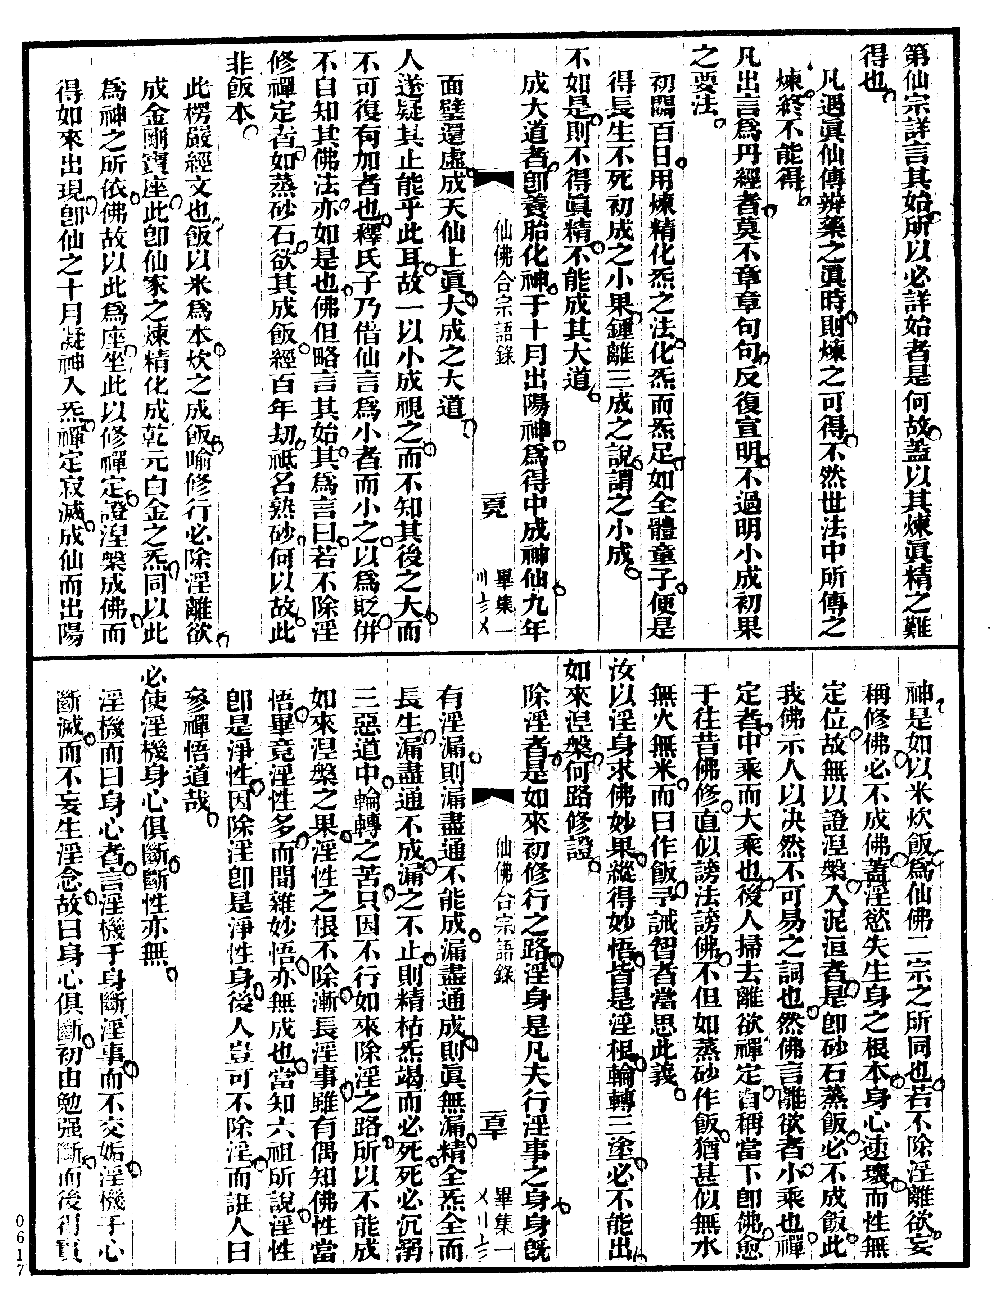 第仙宗詳言其始所以必詳始者是何故蓋以其煉眞精之難
得也
凡遇眞仙傳辨藥之眞時則煉之可得不然世法中所傳之
煉終不能得
凡出言爲丹經者莫不章章句句反復宣明不過明小成初果
之要法
初關百日用煉精化炁之法化炁而炁足如全體童子便是
得長生不死初成之小果鍾離三成之說謂之小成
不如是則不得眞精不能成其大道
成大道者卽養胎化神于十月出陽神爲得中成神仙九年
仙佛合宗語錄
畢集一
面壁還虛成天仙上眞大成之大道
人遂疑其止能乎此耳故一以小成視之而不知其後之大而
不可復有加者也釋氏子乃借仙言爲小者而小之以爲貶併
不自知其佛法亦如是也佛但略言其始其爲言曰若不除淫
修禪定者如蒸砂石欲其成飯經百年劫祇名熟砂何以故此
非飯本
此楞嚴經文也飯以米爲本炊之成飯喻修行必除淫離欲
成金剛寶座此卽仙家之煉精化成乾元白金之炁同以此
爲神之所依佛故以此爲座坐此以修禪定證涅槃成佛而
得如來出現卽仙之十月凝神入炁禪定寂滅成仙而出陽
神是如以米炊飯爲仙佛二宗之所同也若不除淫離欲妄
稱修佛必不成佛蓋淫慾失生身之根本身心速壞而性無
定位故無以證涅槃入泥洹者是卽砂石蒸飯必不成飯此
我佛示人以決然不可易之詞也然佛言離欲者小乘也禪
定者中乘而大乘也後人掃去離欲禪定自稱當下卽佛愈
于往昔佛修直似謗法謗佛不但如蒸砂作飯猶甚似無水
無火無米而曰作飯予誡智者當思此義
汝以淫身求佛妙果縱得妙悟皆是淫根輪轉三塗必不能出
如來涅槃何路修證
除淫者是如來初修行之路淫身是凡夫行淫事之身身旣
仙佛合宗語錄
畢集一
有淫漏則漏盡通不能成漏盡通成則眞無漏精全炁全而
長生漏盡通不成漏之不止則精枯炁竭而必死死必沉溺
三惡道中輪轉之苦只因不行如來除淫之路所以不能成
如來涅槃之果淫性之根不除漸長淫事雖有偶知佛性當
悟畢竟淫性多而間雜妙悟亦無成也當知六祖所說淫性
卽是淨性因除淫卽是淨性身後人豈可不除淫而誑人曰
參禪悟道哉
必使淫機身心俱斷斷性亦無
淫機而曰身心者言淫機于身斷淫事而不交姤淫機于心
斷滅而不妄生淫念故曰身心俱斷初由勉强斷而後得實
0617